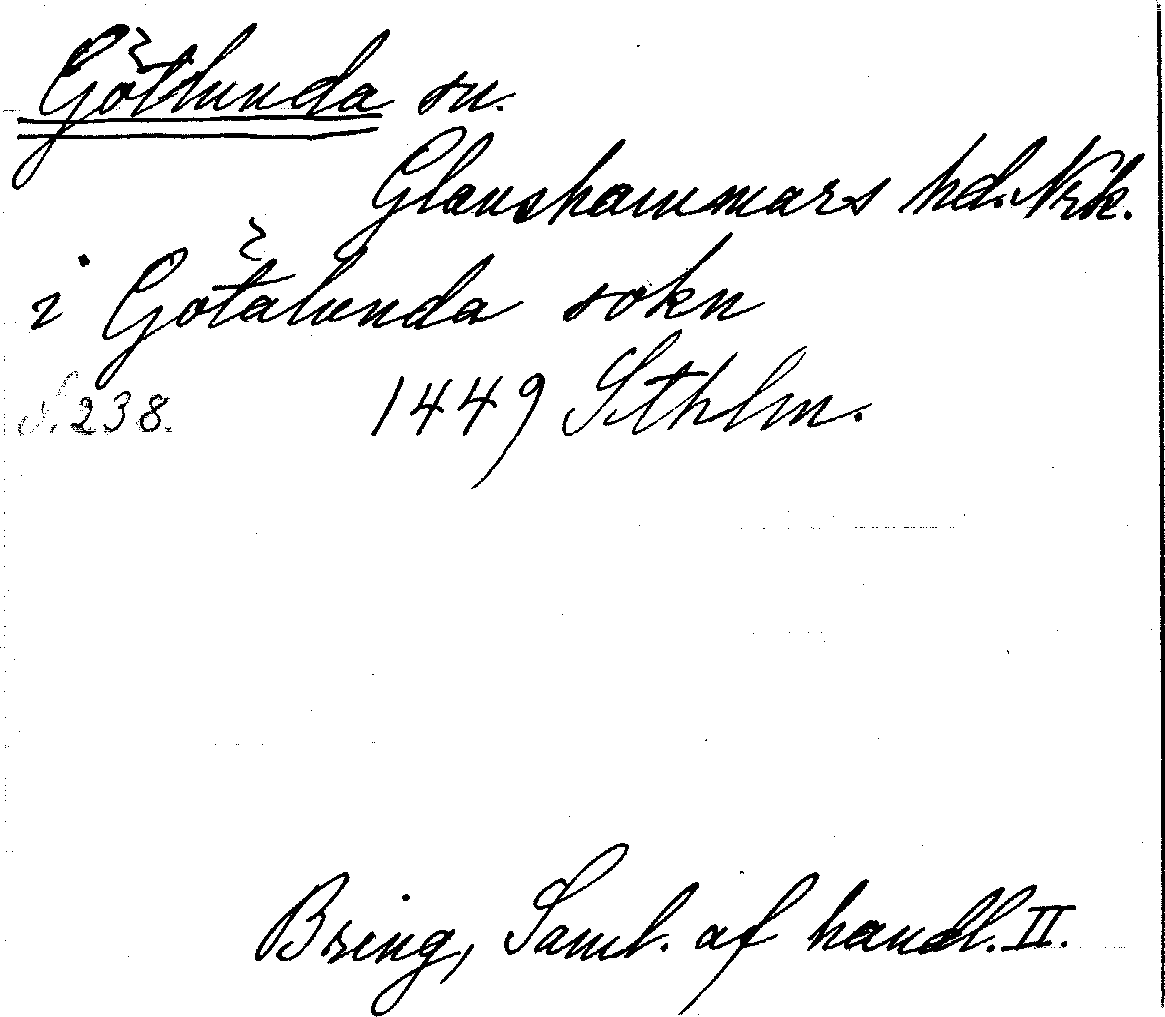 Götlunda sn.
Glanshammars hd. Nrk.
i Götalunda sokn
S. 238. 1449 Sthlm.
Bring, Saml. af handl. II.